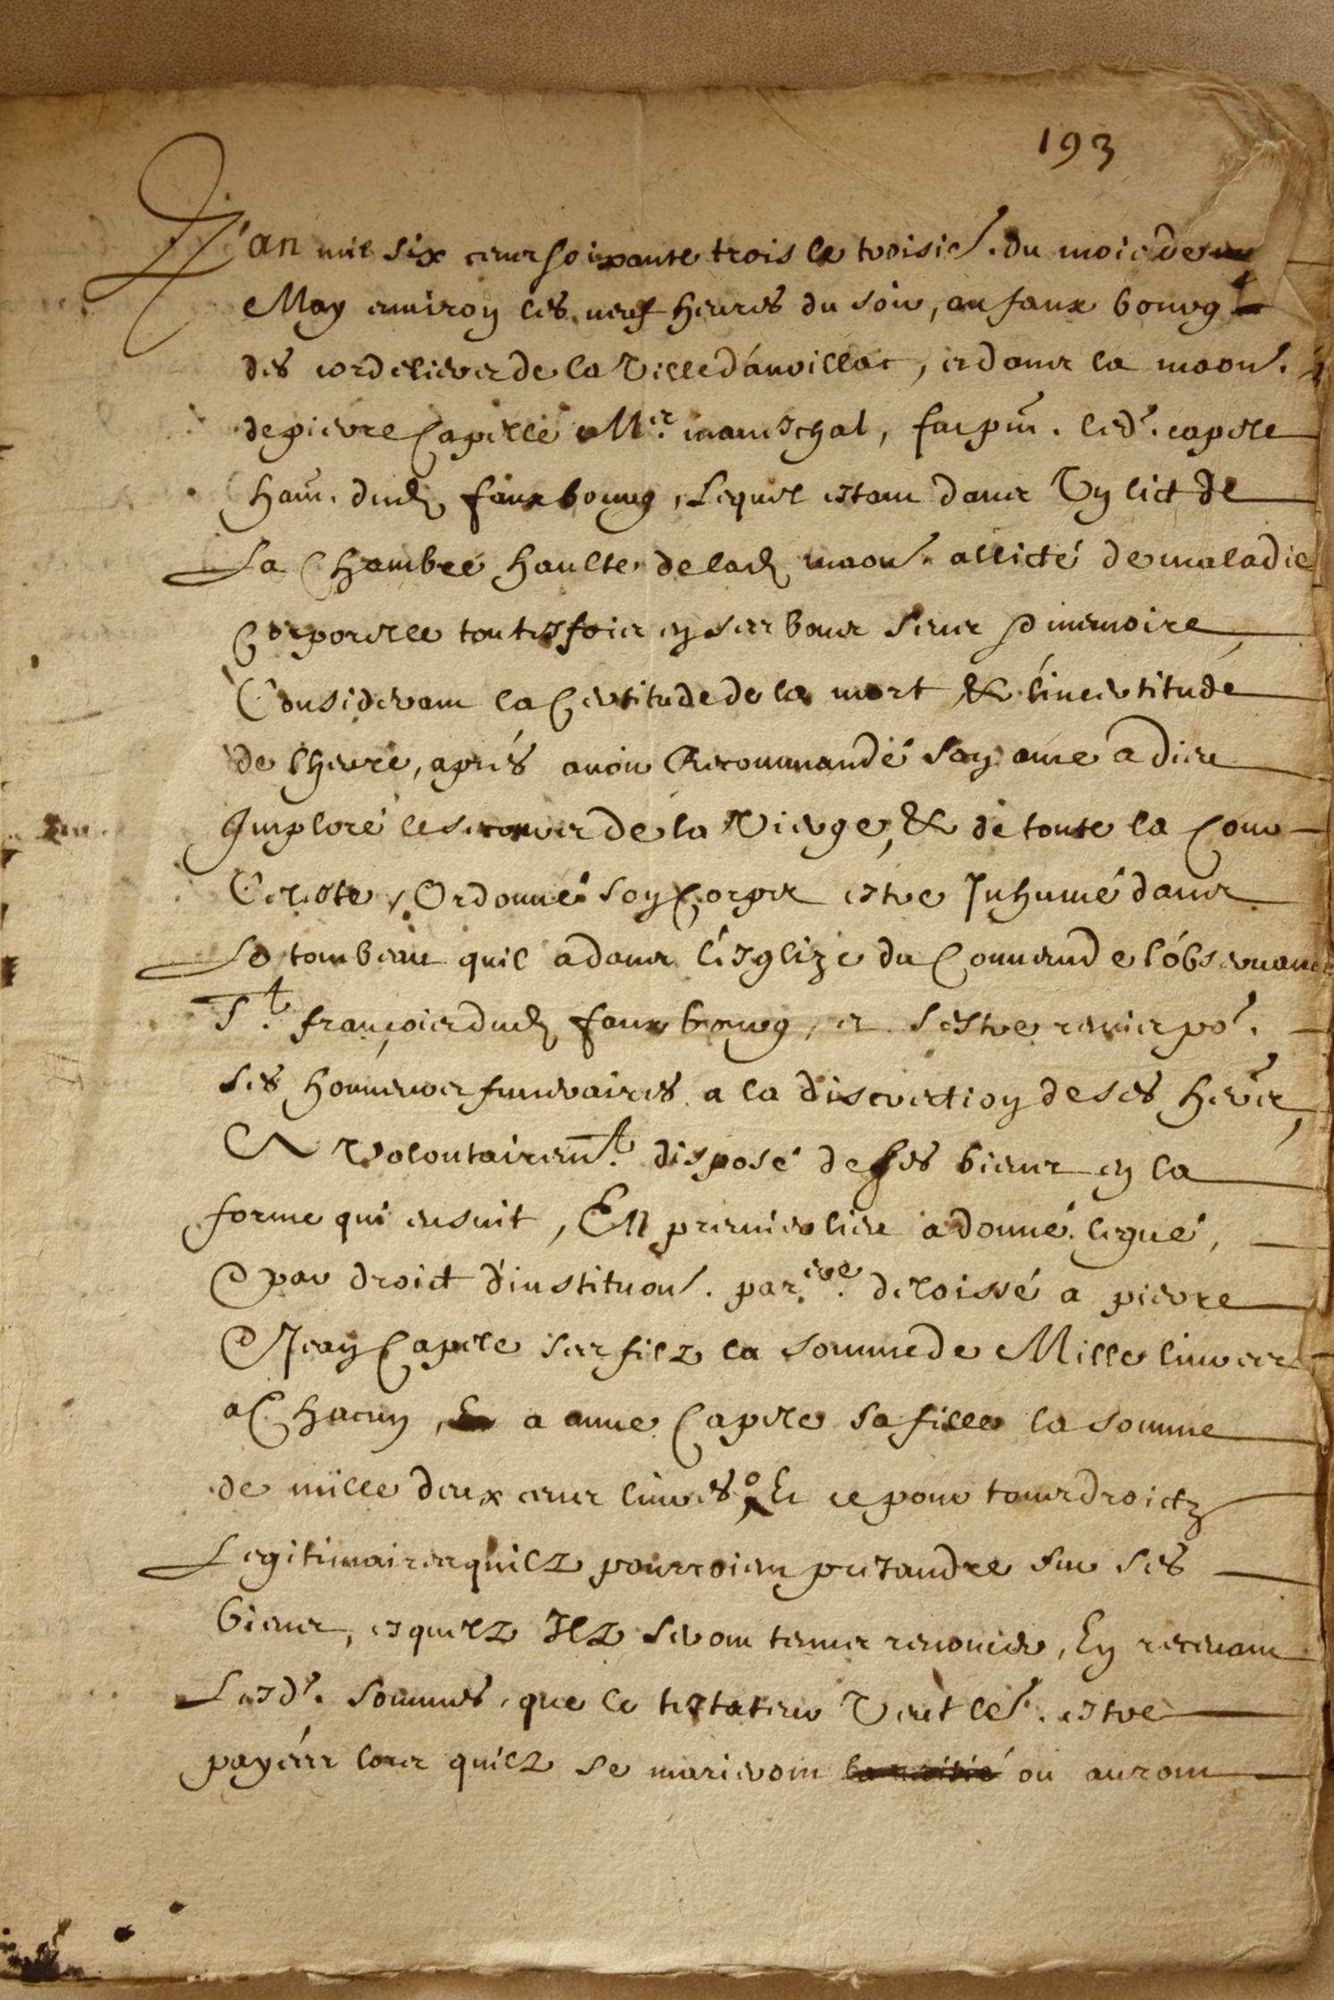 193
L'an mil six cens soixante trois le troisie. du mois de
May environ les neuf heures du soir, au faux bourg
des cordeliers de la Ville d'auvillac, et dans la maon.
de pierre Capelle Mr. mareschal, led. capele
han. dud faux bourg, Lequel estant dans Un lict de
La Chambre haulte de lad maon. allicté de maladie
Corporelle toutesfois en ses bons sens & memoire,
Considerant la Certitude de la mort & l'incertitude
de l'heure, aprés avoir Recommandé son ame a dieu
Imploré le secours de la Vierge, & de toute la Cour
Celeste, Ordonné son Corps estre Inhumé dans
Le tombeau quil a dans l'esglize du Couvent de l'observance
St. françois dud faux bourg, et s'estre remis po.
ses honneurs funeraires a la discretion de ses hers,
A Volontairemt. disposé de ses biens en la
forme qui ensuit, En premier lieu a donné, legué,
& par droict d'institu͠on. par.ere. delaissé a pierre
& Jean Capele ses filz la somme de Mille livres
a Chacun, a anne Capele sa fille la somme
de mille deux cens livres, Et ce pour tous droictz
Legitimaires quilz pourroient pretandre sur ses
biens, esquelz Ilz seront tenus renoncer, En recevant
Lesd. sommes, que le testateur Veut les. estre
payées lors quilz se marieront la moitié ou auront